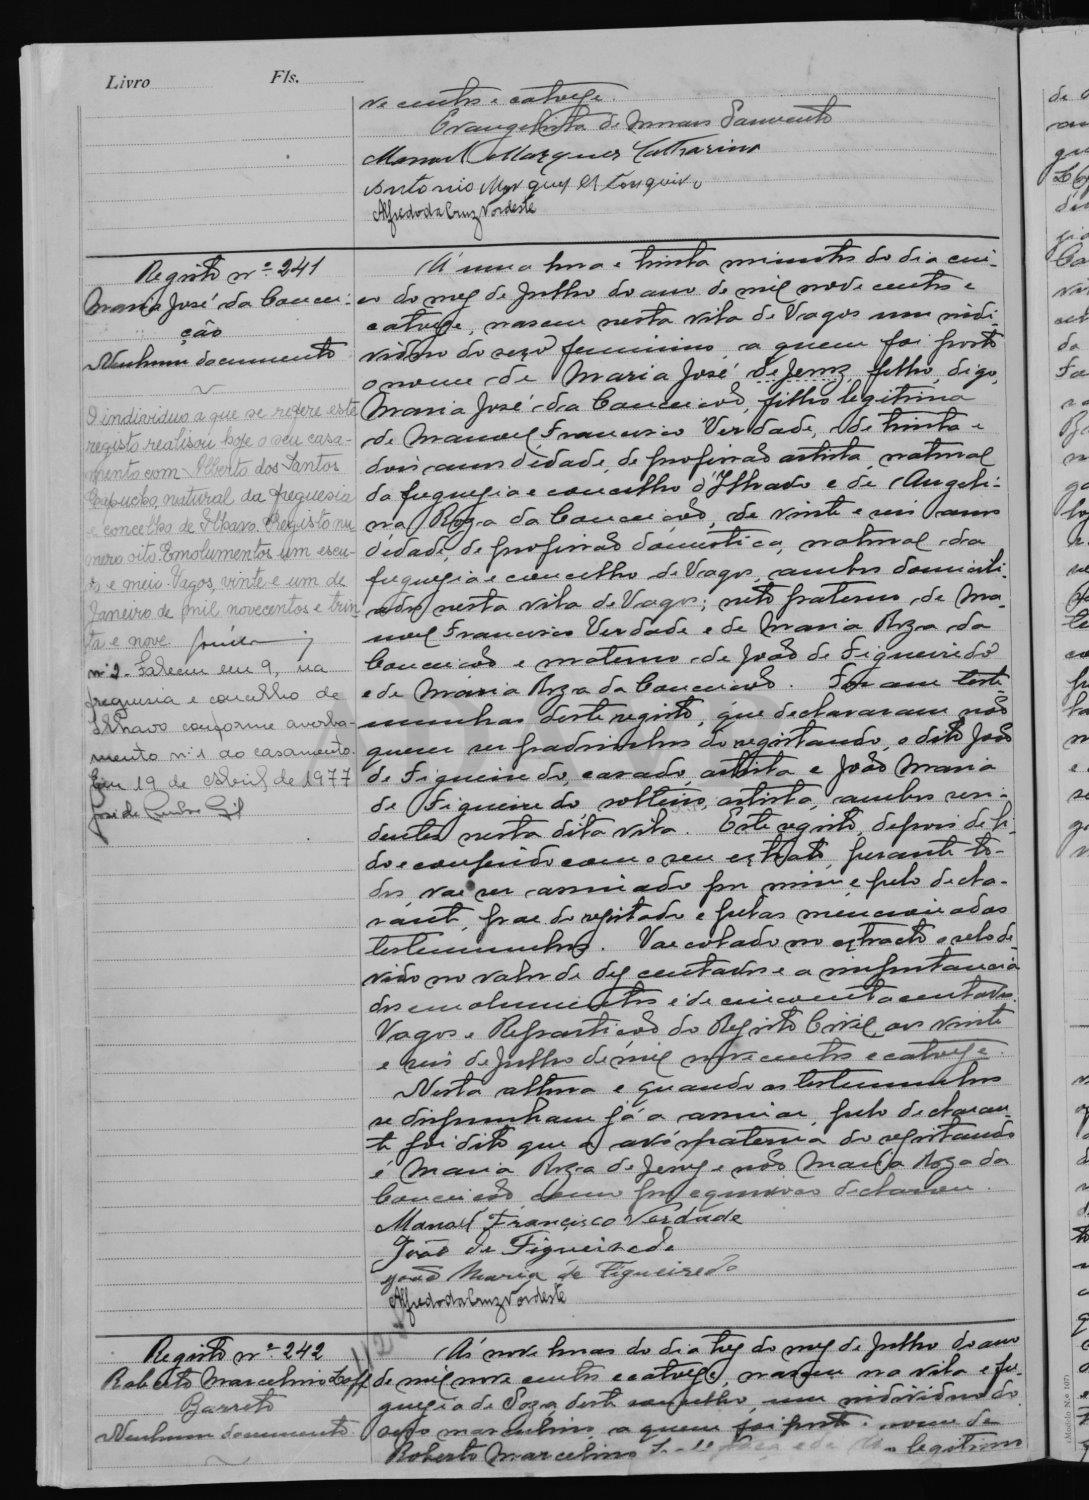 Livro Fls.
ve centos e catorze.
Evangelista de Moraes Sarmento
Manoel Marques Catharino
Antonio Marques
Alfredo da Cruz Nordeste
Registo nº 241
Maria José da Concei-
ção
Nenhum documento
O individuo a que se refere este
registo realisou hoje o seu casa-
mento com Alberto dos Santos
Capucho, natural da freguesia
e concelho de Ilhavo. Registo nu
mero oito. Emolumentos um escu-
do e meio. Vagos, vinte e um de
Janeiro de mil novecentos e trin-
ta e nove.
nº 2. Faleceu em 9, na
freguesia e concelho de
Ilhavo conforme averba-
mento nº 1 ao casamento.
Em 19 de Abril de 1977
José de
Á uma hora e trinta minutos do dia cin-
co do mez de Julho do ano de mil nove centos e
catorze, nasceu nesta vila de Vagos um indi-
viduo do sexo feminino a quem foi posto
o nome de Maria José de Jesus, filho, digo,
Maria José da Conceicão, filho legitima
de Manoel Francisco Verdade, de trinta e
dois anos d'edade, de profissão artista, natural
da freguezia e concelho d'Ilhavo e de Angeli-
na Roza da Conceicão, de vinte e seis anos
d'edade, de profissão domestica, natural da
freguezia e concelho de Vagos, ambos domicili-
ados nesta vila de Vagos; neto paterno de Ma-
noel Francisco Verdade e de Maria Roza da
Conceicão e materno de João de Figueiredo
e de Maria Roza da Conceicão. Foram teste-
munhas deste registo, que declararam não
querer ser padrinhos do registando, o dito João
de Figueiredo, casado, artista e João Maria
de Figueiredo solteiro, artista, ambos resi-
dentes nesta dita vila. Este registo, depois de li-
do e conferido com o seu extrato, perante to-
dos, vae ser assinado por mim e pelo decla-
rante, pae do registado e pelas mencionadas
testemunhas. Vae colado no extracto o selo de-
vido no valor de dez centavos e a importancia
dos emolumentos é de cincoenta centavos.
Vagos e Repartição do Registo Civil, aos vinte
e seis de Julho de mil nove centos e catorze.
Nesta altura e quando as testemunhas
se dispunham já a assinar, pelo declaran-
te foi dito que a avó paterna do registando
é Maria Roza de Jesus e não Maria Roza da
Conceicão, como por equivoco declarou.
Manoel Francisco Verdade
João de Figueiredo
João Maria de Figueiredo
Alfredo da Cruz Nordeste
Registo nº 242
Roberto Marcelino
Barreto
Nenhum documento
Ás nove horas do dia trez do mez de Julho do ano
de mil nove centos e catorze, nasceu na vila e fre-
guezia de Soza, deste concelho, um individuo do
sexo masculino a quem foi posto o nome de
Roberto Marcelino legitimo
(Modelo N.º 107)